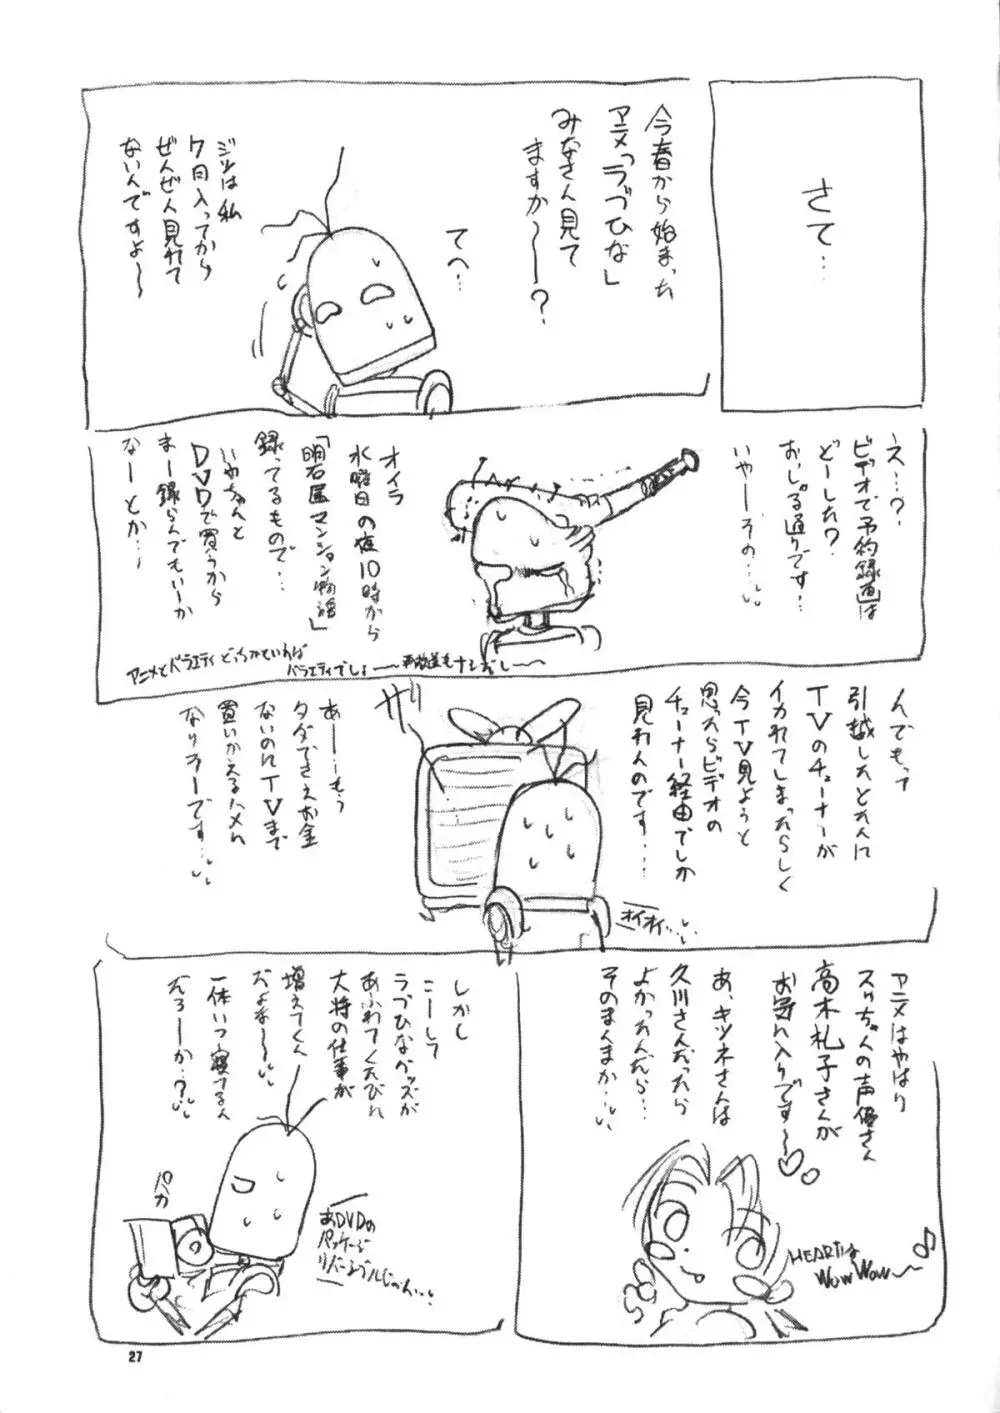 さて…
今春から始まった
アニメ「ラブひな」
みなさん見て
ますか〜〜?
てへ…
ジツは私
7月入ってから
ぜんぜん見れて
ないんですよ〜
え…?
ビデオで予約録画は
どーした?
おっしゃる通りです…
いやーその…
オイラ
水曜日の夜10時から
「明石屋マンション物語」
録ってるもので…
いやちゃんと
DVDで買うから
まー録らんでもいいか
なーとか…
アニメとバラエティどっちかといわれば
バラエティでしょ〜〜再放送もナシだし〜〜
んでもって
引越したとたんに
TVのチューナーが
イカれてしまったらしく
今TV見ようと
思ったらビデオの
チューナー経由でしか
見れんのです…
オイオイ…
あーーもう
タダでさえお金
ないのにTVまで
買いかえるハメに
なりそーです…
アニメはやはり
スゥちゃんの声優さん
高木礼子さんが
お気に入りです〜♡
あ、キツネさんは
久川さんだったら
よかったんだら…
そのまんまか…
HEARTは
WOW WOW〜♪
しかし
こーして
ラブひなグッズが
あふれてくたびに
大将の仕事が
増えてくん
だよな〜〜
一体いつ寝てるん
だろーか…?
パカ
あDVDの
パッケージ
リバーシブルじゃん…
27